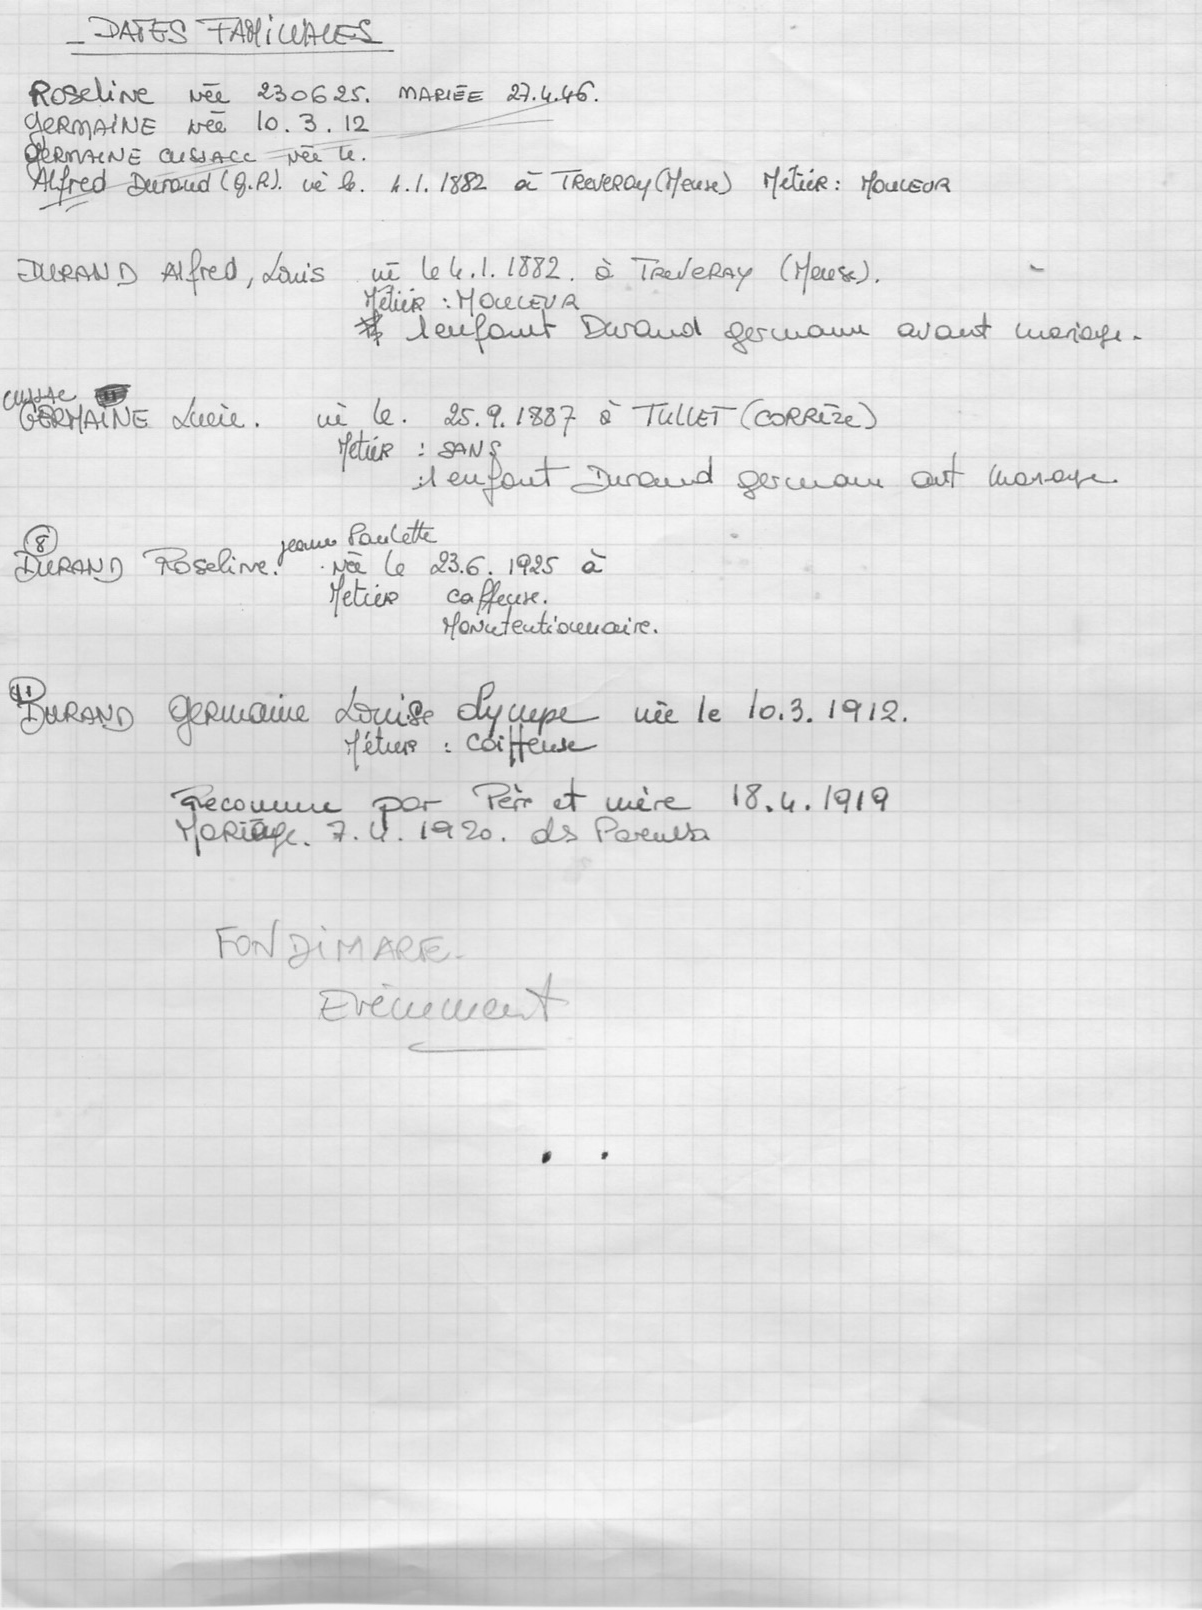 - DATES FAMILIALES
Roseline née 230625. MARIÉE 27.4.46.
GERMAINE née 10.3.12
GERMAINE CUSSACC née le.
Alfred Durand (G.P). né le. 4.1.1882 à TREVERAY (Meuse) Métier: MOULEUR
DURAND Alfred, Louis né le 4.1.1882. à TREVERAY (Meuse).
Métier : MOULEUR
1 enfant Durand germaine avant mariage.
CUSSAC
GERMAINE Lucie. né le. 25.9.1887 à TULLET (CORRÈZE)
Metier : SANS
1 enfant Durand germaine avt mariage.
8
Jeanne Paulette
DURAND Roseline. Née le 23.6.1925 à
Metier coffeuse.
Manutentionnaire.
11
DURAND Germaine Louise Lympe née le 10.3.1912.
Métier : coiffeuse
Reconnue par Père et mère 18.4.1919
Mariage. 7.4.1920. ds
FONDIMARE.
Evènement